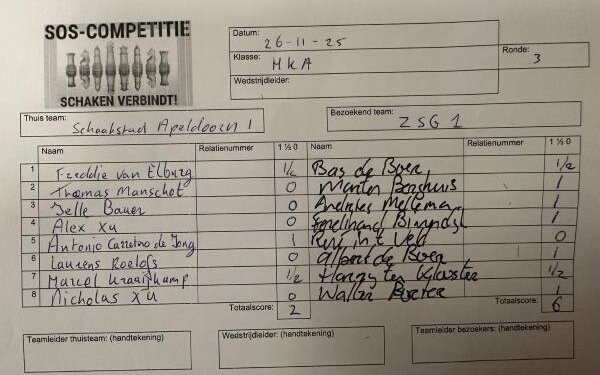 SOS-COMPETITIE
SCHAKEN VERBINDT!
Datum: 26-11-25
Klasse: MKA
Wedstrijdleider:
Ronde: 3
Thuis team: Schaakstad Apeldoorn 1
Bezoekend team: ZSG 1
Naam Relatienummer 1 ½ 0 Naam Relatienummer 1 ½ 0
1 Freddie van Elburg 1/2 Bas de Boer 1/2
2 Thomas Manschot 0 Berghuis 1
3 Jelle Bauer 0 Andries Mellema 1
4 Alex Xu 0 Ferdinand 1
5 Antonio Carreino de Jong 1 in 't Veld 0
6 Laurens Roelofs 0 Albert de Boer 1
7 Marcel Kraaijkamp 1/2 Harry ten Klooster 1/2
8 Nicholas Xu 0 1
Totaalscore: 2 Totaalscore: 6
Teamleider thuisteam: (handtekening)
Wedstrijdleider: (handtekening)
Teamleider bezoekers: (handtekening)